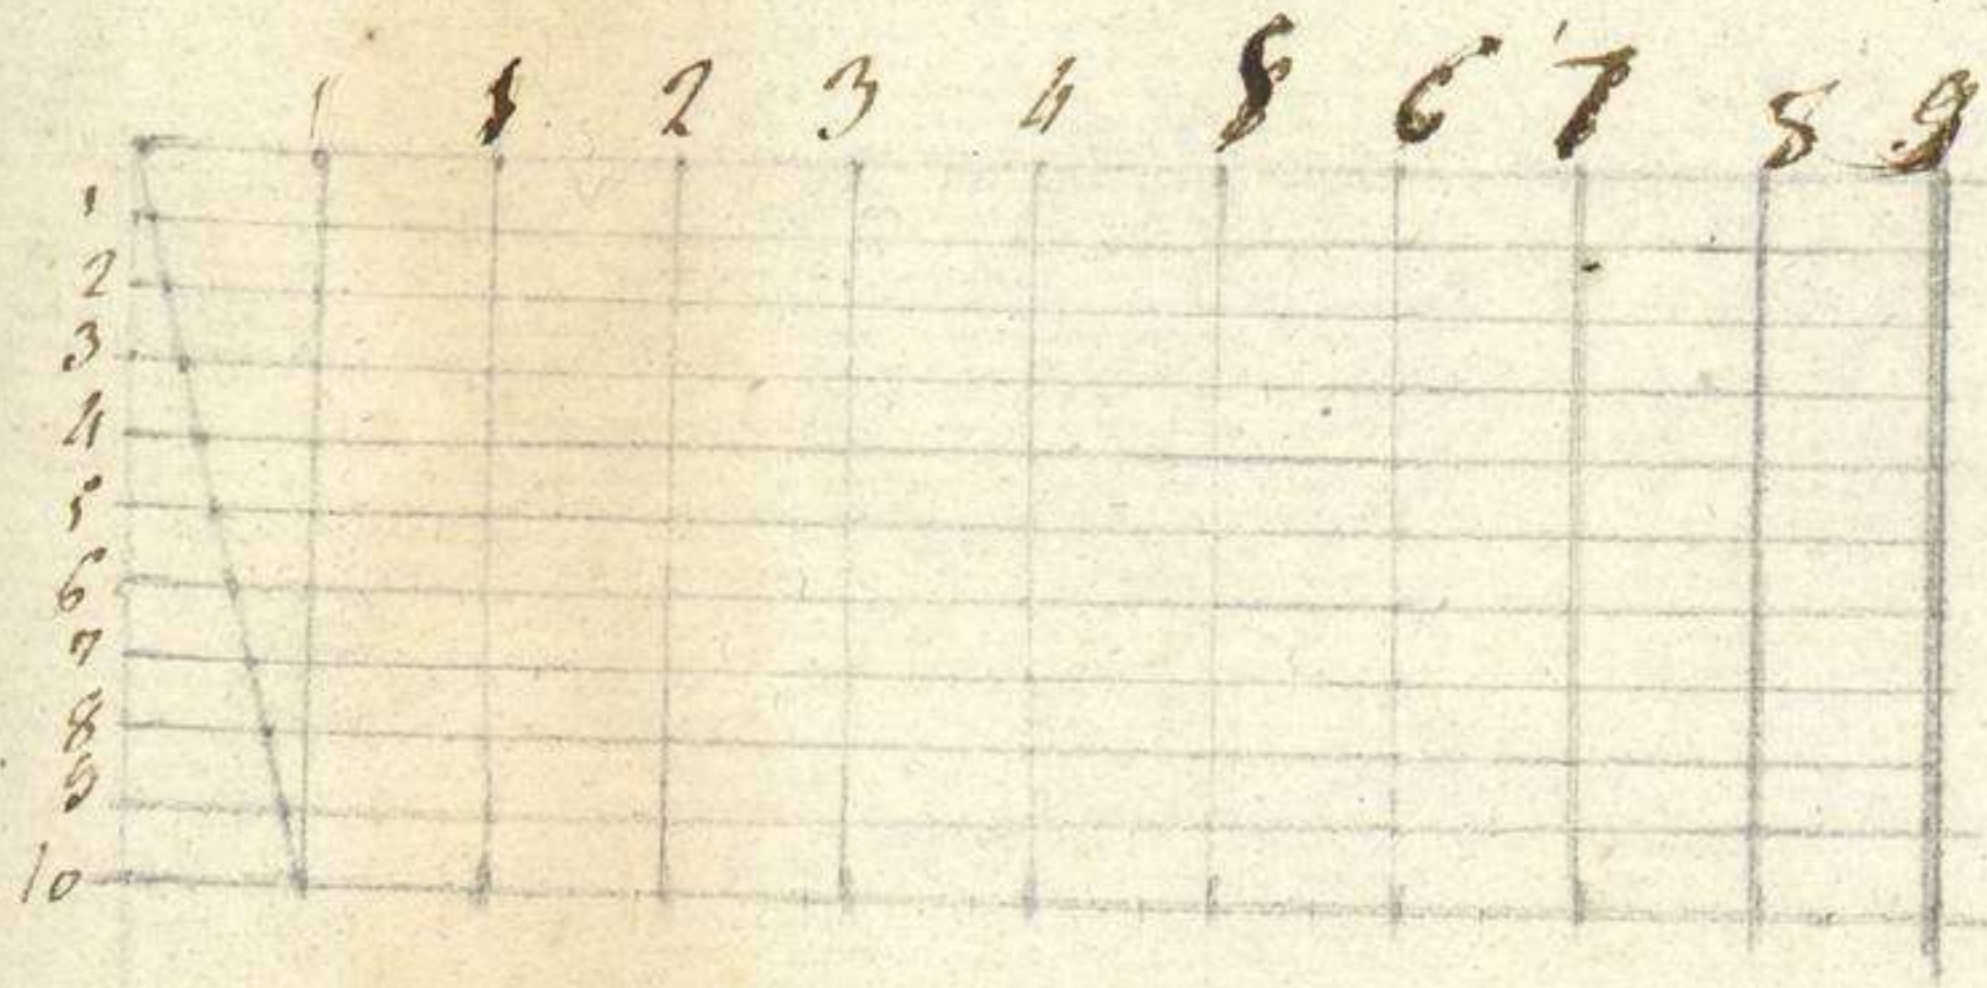 1 1 2 3 4 5 6 7 8 9
1
2
3
4
5
6
7
8
9
10